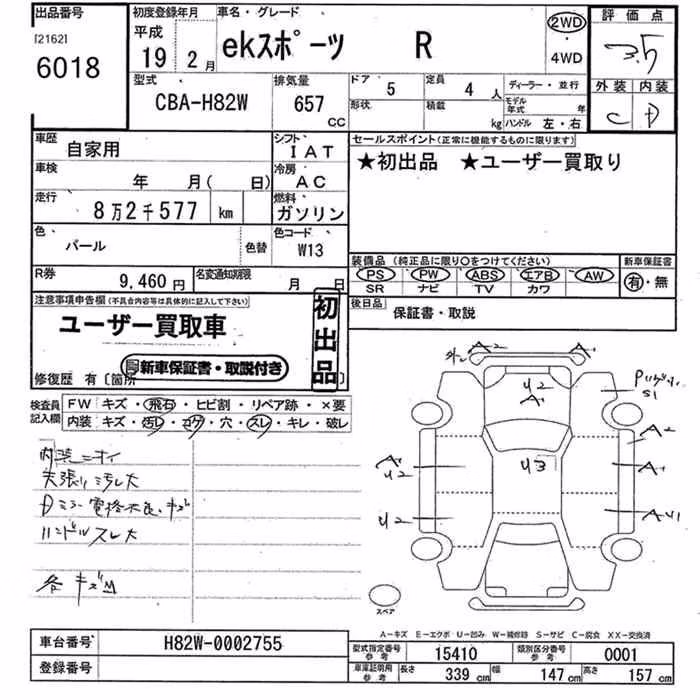 出品番号
[2162]
6018
初度登録年月
平成
19 2月
車名・グレード
ekスポーツ R
2WD
・
4WD
評価点
3.5
外装 内装
C D
型式
CBA-H82W
排気量
657
CC
ドア
5
形状
定員
4 人
積載
kg
ディーラー・並行
モデル年式 年
ハンドル 左・右
車歴
自家用
シフト
IAT
車検
年 月( 日)
冷房
AC
走行
8万2千577 km
燃料
ガソリン
色
パール
色替
色コード
W13
R券
9,460円
名変通知期限
月 日
セールスポイント(正常に機能するものに限ります)
★初出品 ★ユーザー買取り
装備品 (純正品に限り○をつけてください)
PS PW ABS エアB AW
SR ナビ TV カワ
新車保証書
有・無
後日品
保証書・取説
注意事項申告欄(不具合内容等は具体的に記入して下さい)
ユーザー買取車
初出品
新車保証書・取説付き
修復歴 有〔箇所
検査員記入欄
FW キズ・飛石・ヒビ割・リペア跡・×要
内装 キズ・汚レ・コゲ・穴・スレ・キレ・破レ
内装ニオイ
天張り汚レ大
Dミラー電格不良、キズ
ハンドルスレ大
各キズ凹
A2
A1
U2
A1
S1
A2
U3
A1
U2
A1
U2
AU1
スペア
A-キズ E-エクボ U-凹み W-補修跡 S-サビ C-腐食 XX-交換済
車台番号
H82W-0002755
登録番号
型式指定番号
参考
15410
類別区分番号
参考
0001
車庫証明用
参考
長さ 339 cm
幅 147 cm
高さ 157 cm